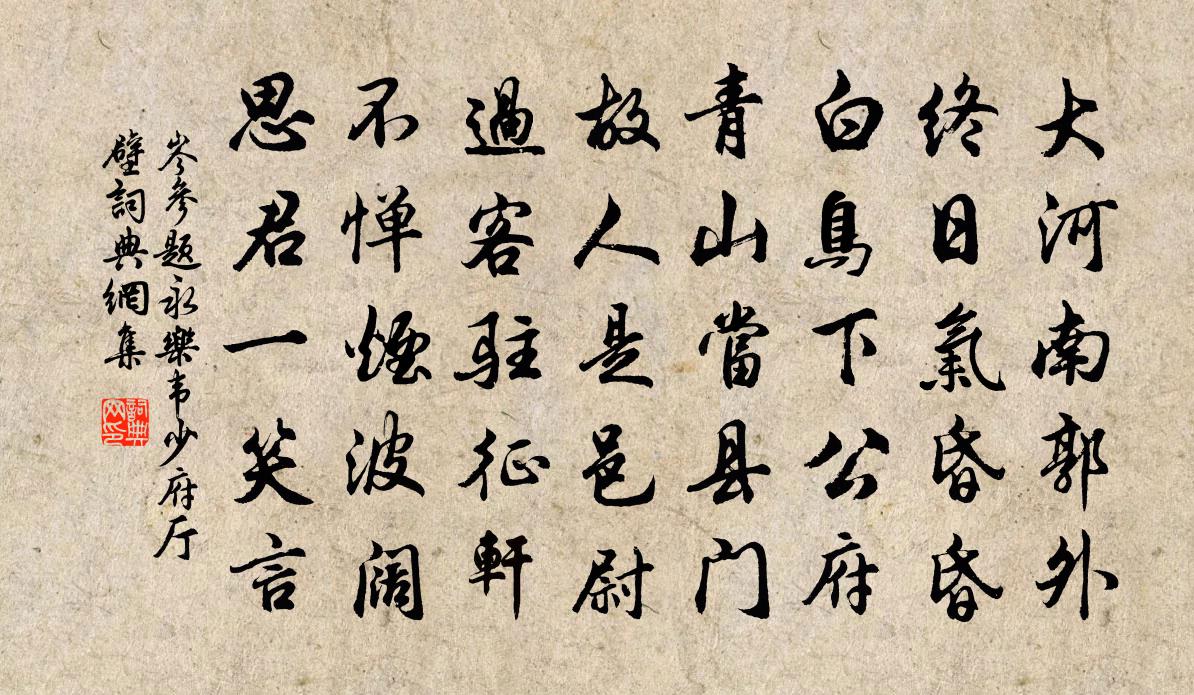 大河南郭外
終日氣昏昏
白鳥下公府
青山當县门
故人是邑尉
過客駐征軒
不惮煙波阔
思君一笑言
岑參题永樂韦少府厅
壁詞典網集
詞典网印